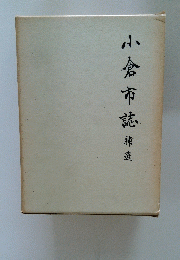 小倉市誌 補遺